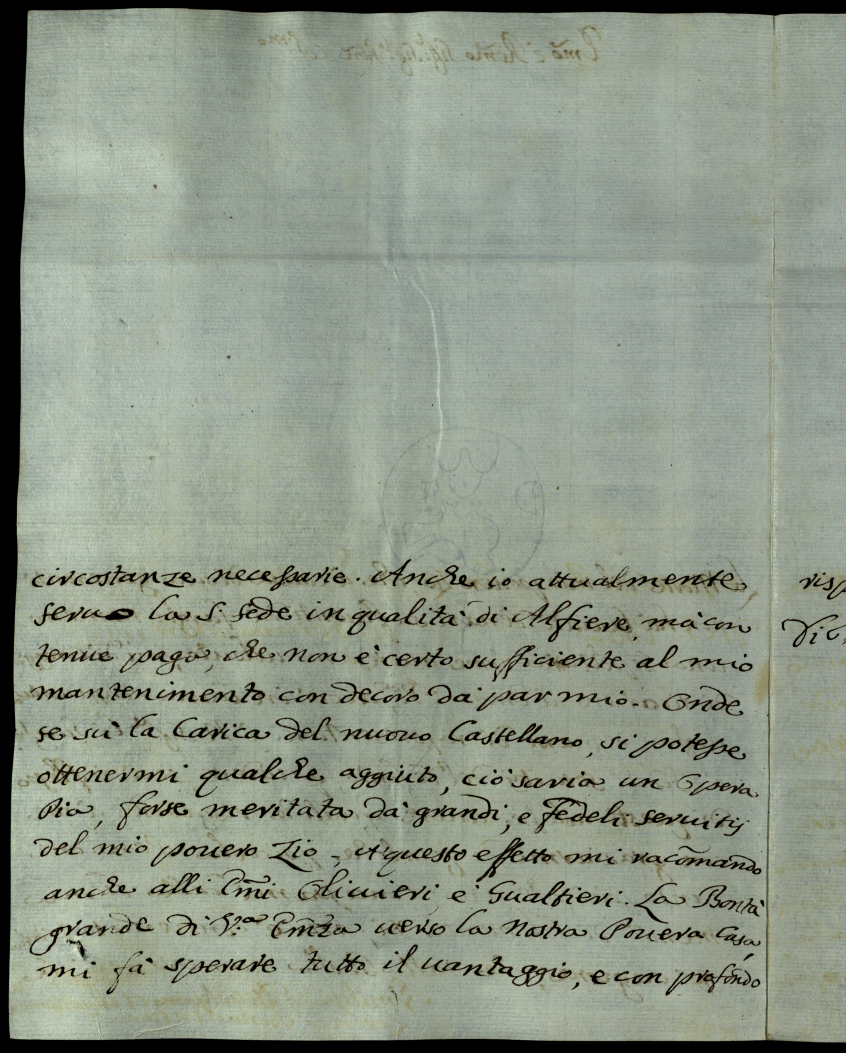 circostanze necessarie. Anche io attualmente
seruo la S. Sede in qualità di Alfiere, mà con
tenue paga, che non è certo sufficiente al mio
mantenimento con decoro dà par mio. Onde
se sù la Carica del nuouo Castellano, si potesse
ottenermi qualche aggiuto, ciò saria un Opera
Pia, forse meritata dà grandi, e fedeli seruitij
del mio pouero Zio. A questo effetto mi racom̃ando
anche alli Em̃i Oliuieri è Gualtieri. La Bontà
grande di V.ra Em̃za uerso la Nostra Pouera Casa,
mi fà sperare tutto il uantaggio, e con profondo
risp